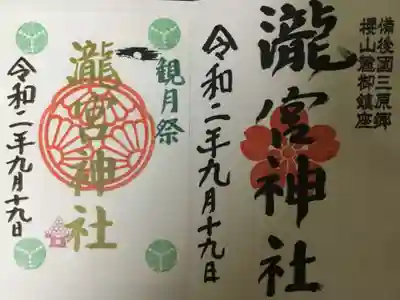 備後國三原郷
櫻山鷺御鎮座
瀧宮神社
令和二年九月十九日
観月祭
瀧宮神社
令和二年九月十九日